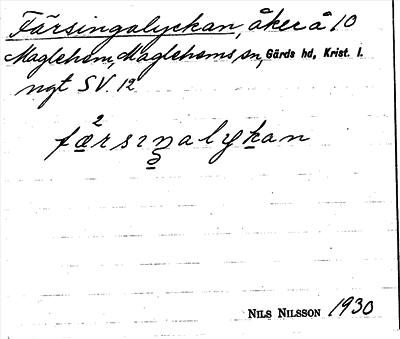 Färsingalyckan, åker å 10
Maglehem, Maglehems sn, Gärds hd, Krist. l.
ngt SV. 12
2
færsıŋalykan
NILS NILSSON 1930